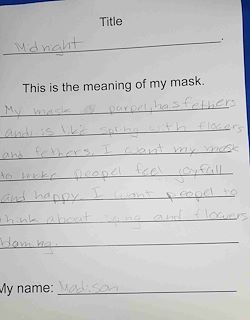 Title
Midnight
This is the meaning of my mask.
My mask is purpel, has fethers
and is like spring with flowers
and fethers. I want my mask
to make peopel feel joyfull
and happy. I want peopel to
think about spring and flowers
blaming.
My name: Madison